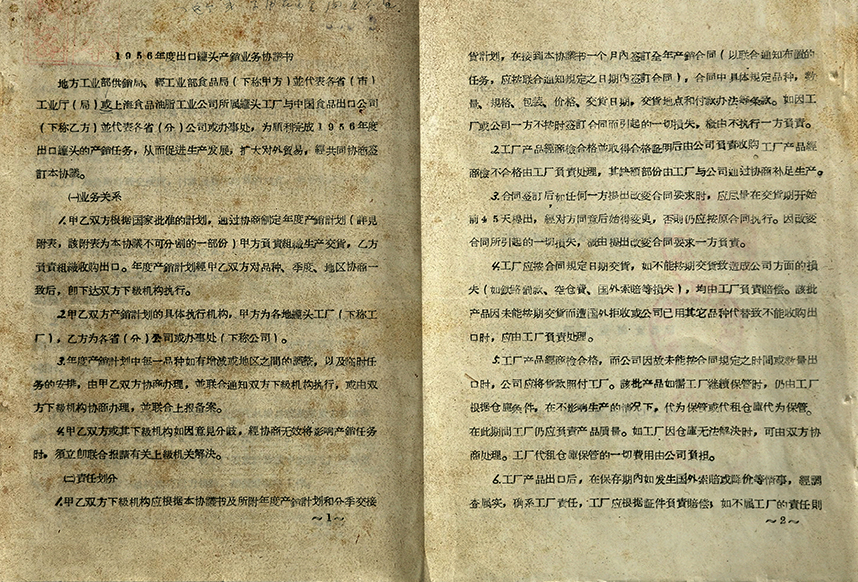 1956年度出口罐头产销业务协議书
地方工业部供銷局、輕工业部食品局（下称甲方）並代表各省（市）
工业厅（局）或上海食品油脂工业公司所属罐头工厂与中国食品出口公司
（下称乙方）並代表各省（分）公司或办事处，为順利完成1956年度
出口罐头的产銷任务，从而促进生产发展，扩大对外貿易，經共同协商签
訂本协議。
㈠业务关系
1.甲乙双方根据国家批准的計划，通过协商制定年度产銷計划（詳見
附表，該附表为本协議不可分割的一部份）甲方負責組織生产交貨，乙方
負責組織收购出口。年度产銷計划經甲乙双方对品种、季度、地区协商一
致后，卽下达双方下級机构执行。
2.甲乙双方产銷計划的具体执行机构，甲方为各地罐头工厂（下称工
厂），乙方为各省（分）公司或办事处（下称公司）。
3.年度产銷計划中每一品种如有增减或地区之間的調整，以及临时任
务的安排，由甲乙双方协商办理，並联合通知双方下級机构执行，或由双
方下級机构协商办理，並联合上报备案。
4.甲乙双方或其下級机构如因意見分歧，經协商无效将影响产銷任务
时，須立卽联合报請有关上級机关解决。
㈡责任划分
1.甲乙双方下級机构应根据本协議书及所附年度产銷計划和分季交接
～1～
貨計划，在接到本协議书一个月內签訂全年产銷合同（以联合通知布置的
任务，应按联合通知規定之日期內签訂合同），合同中具体規定品种，数
量、規格、包装、价格、交貨日期，交貨地点和付款办法等条款。如因工
厂或公司一方不按时签訂合同而引起的一切損失，緞由不执行一方負責。
2.工厂产品經商檢合格並取得合格証明后由公司負責收购工厂产品經
商檢不合格由工厂負責处理，其缺額部份由工厂与公司通过协商补足生产。
3.合同签訂后如任何一方提出改变合同要求时，应尽量在交貨期开始
前45天提出，經对方同意后始得变更，否則仍应按原合同执行。因改变
合同所引起的一切損失，概由提出改变合同要求一方負責。
4.工厂应按合同規定日期交貨，如不能按期交貨致造成公司方面的損
失（如銀行罰款、空仓費、国外索賠等損失），均由工厂負責賠偿。該批
产品因未能按期交貨而遭国外拒收或公司已用其它品种代替致不能收购出
口时，应由工厂負責处理。
5.工厂产品經商檢合格，而公司因故未能按合同規定之时間或数量出
口时，公司应将貨款照付工厂。該批产品如需工厂継續保管时，仍由工厂
根据仓庫条件，在不影响生产的情况下，代为保管或代租仓庫代为保管。
在此期間工厂仍应負責产品质量。如工厂因仓庫无法解决时，可由双方协
商处理。工厂代租仓庫保管的一切費用由公司負担。
6.工厂产品出口后，在保存期內如发生国外索賠或降价等情事，經調
查属实，确系工厂责任，工厂应根据証件負責賠偿；如不属工厂的责任則
～2～